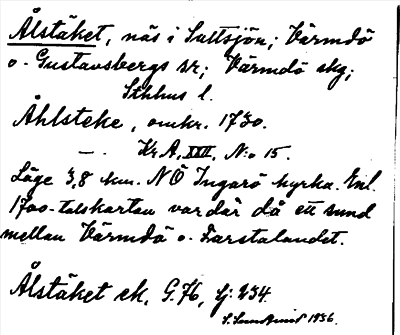 Ålstäket, näs i Saltsjön; Värmdö
o. Gustavsbergs sr; Värmdö skg;
Sthlms l.
Åhlsteke, omkr. 1730.
—. Kr. A, XXII, N:o 15.
Läge 3,8 km. NÖ Ingarö kyrka. Enl.
1700-talskartan var där då ett sund
mellan Värmdö o. Farstalandet.
Ålstäket ek, G.76, bj: 234.
1936.